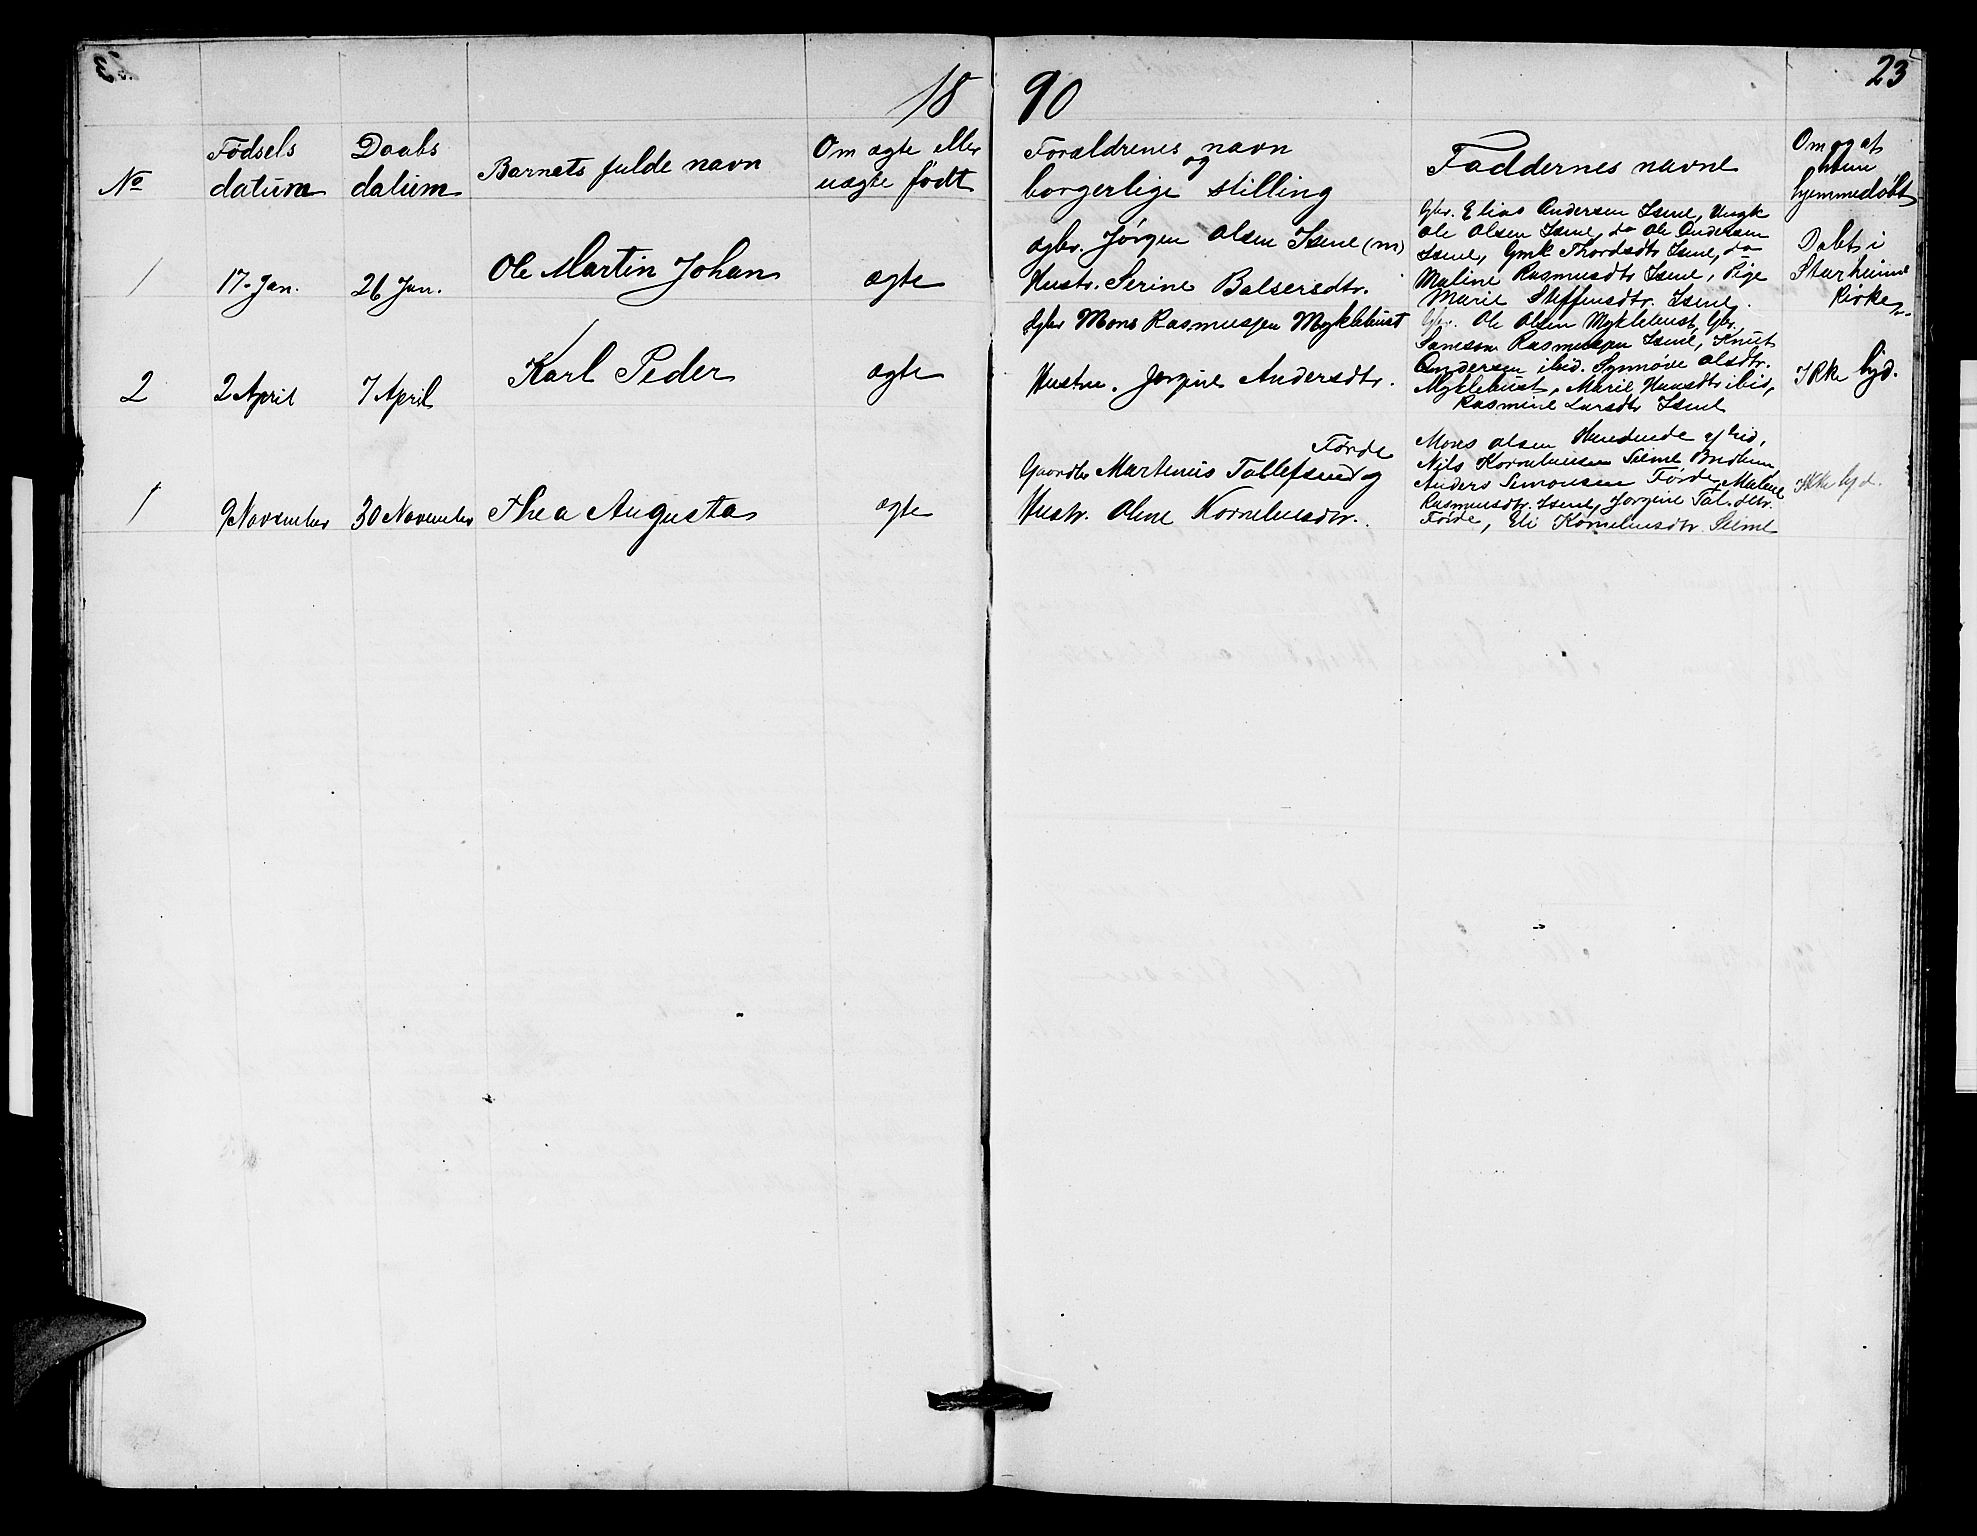 18 90
23
No
Fødsels datum
Daabs datum
Barnets fulde navn
Om ægte eller uægte født
Forældrenes navn og borgerlige stilling
Faddernes navne
Om og af hvem hjemmedøbt
1
17. Jan.
26 Jan.
Ole Martin Johan
ægte
Jørgen Olsen Isene (m)
Hustr. Serine Balsersdtr.
Gbr. Elias Andersen Isene, Ungk
Ole Olsen Isene, do Ole Andersen
Isene, Gmk Thordsdtr Isene, do
Maline Rasmusdtr Isene, Pige
Marie Steffensdtr. Isene.
Døbt i
Starheims
Kirke
2
2 April
7 April
Karl Peder
ægte
Gbr Mons Rasmussen Myklebust
Hustru. Jorgine Andersdtr.
Gbr. Ole Olsen Myklebust, Gbr.
Samson Rasmussen Isene, Knut
Andersen ibid. Synnøve Olsdtr.
Myklebust, Marie Hansdtr ibid,
Rasmine Larsdtr Isene
Ikke hjd.
1
9 November
30 November
Thea Augusta
ægte
Førde
Gaardbr Martinus Tollefsen og
Hustr. Oline Kornelius­dtr.
Mons Olsen
Nils Korneliussen Seime
Anders Simonsen Førde, Malene
Rasmusdtr. Isene, Jorgine Tol. dtr.
Førde, Eli Korneliusdtr. Seime
Ikke hjd.